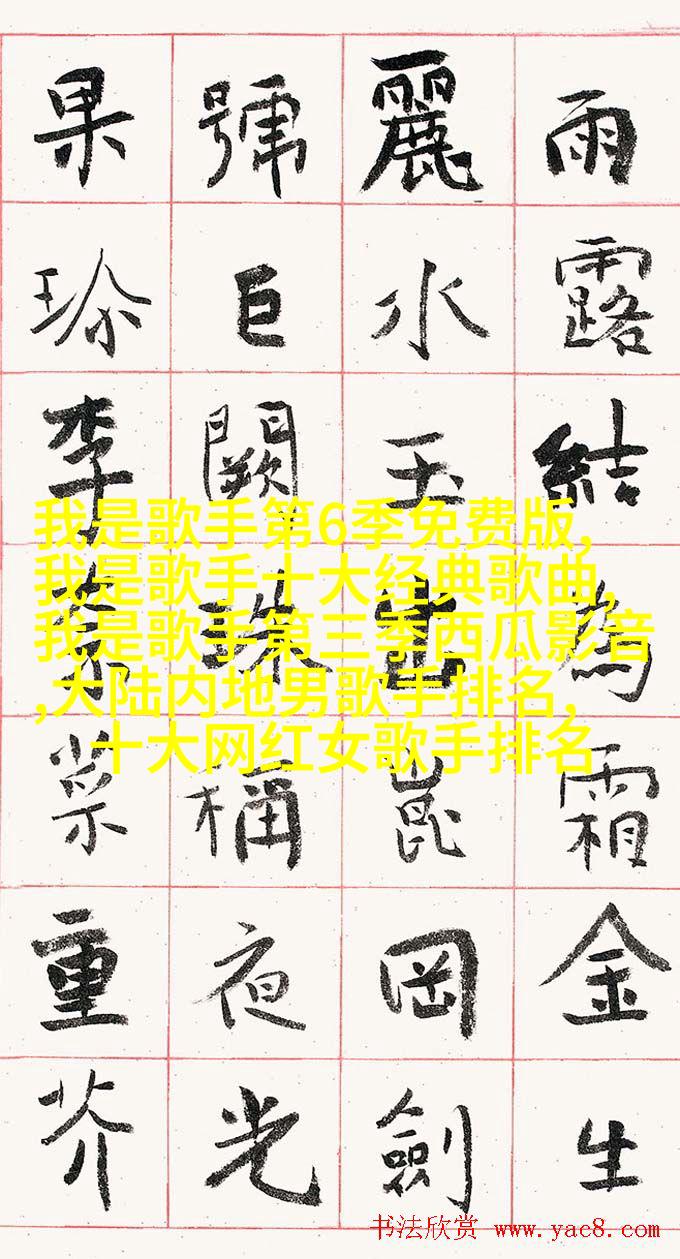 雨露結為霜金生
麗水玉出崑岡劍
號巨闕珠稱夜光
果珎李柰菜重芥
我是歌手第6季免费版,
我是歌手十大经典歌曲,
我是歌手第三季西瓜影音
,大陆内地男歌手排名,
十大网红女歌手排名
书法欣赏 www.yac8.com